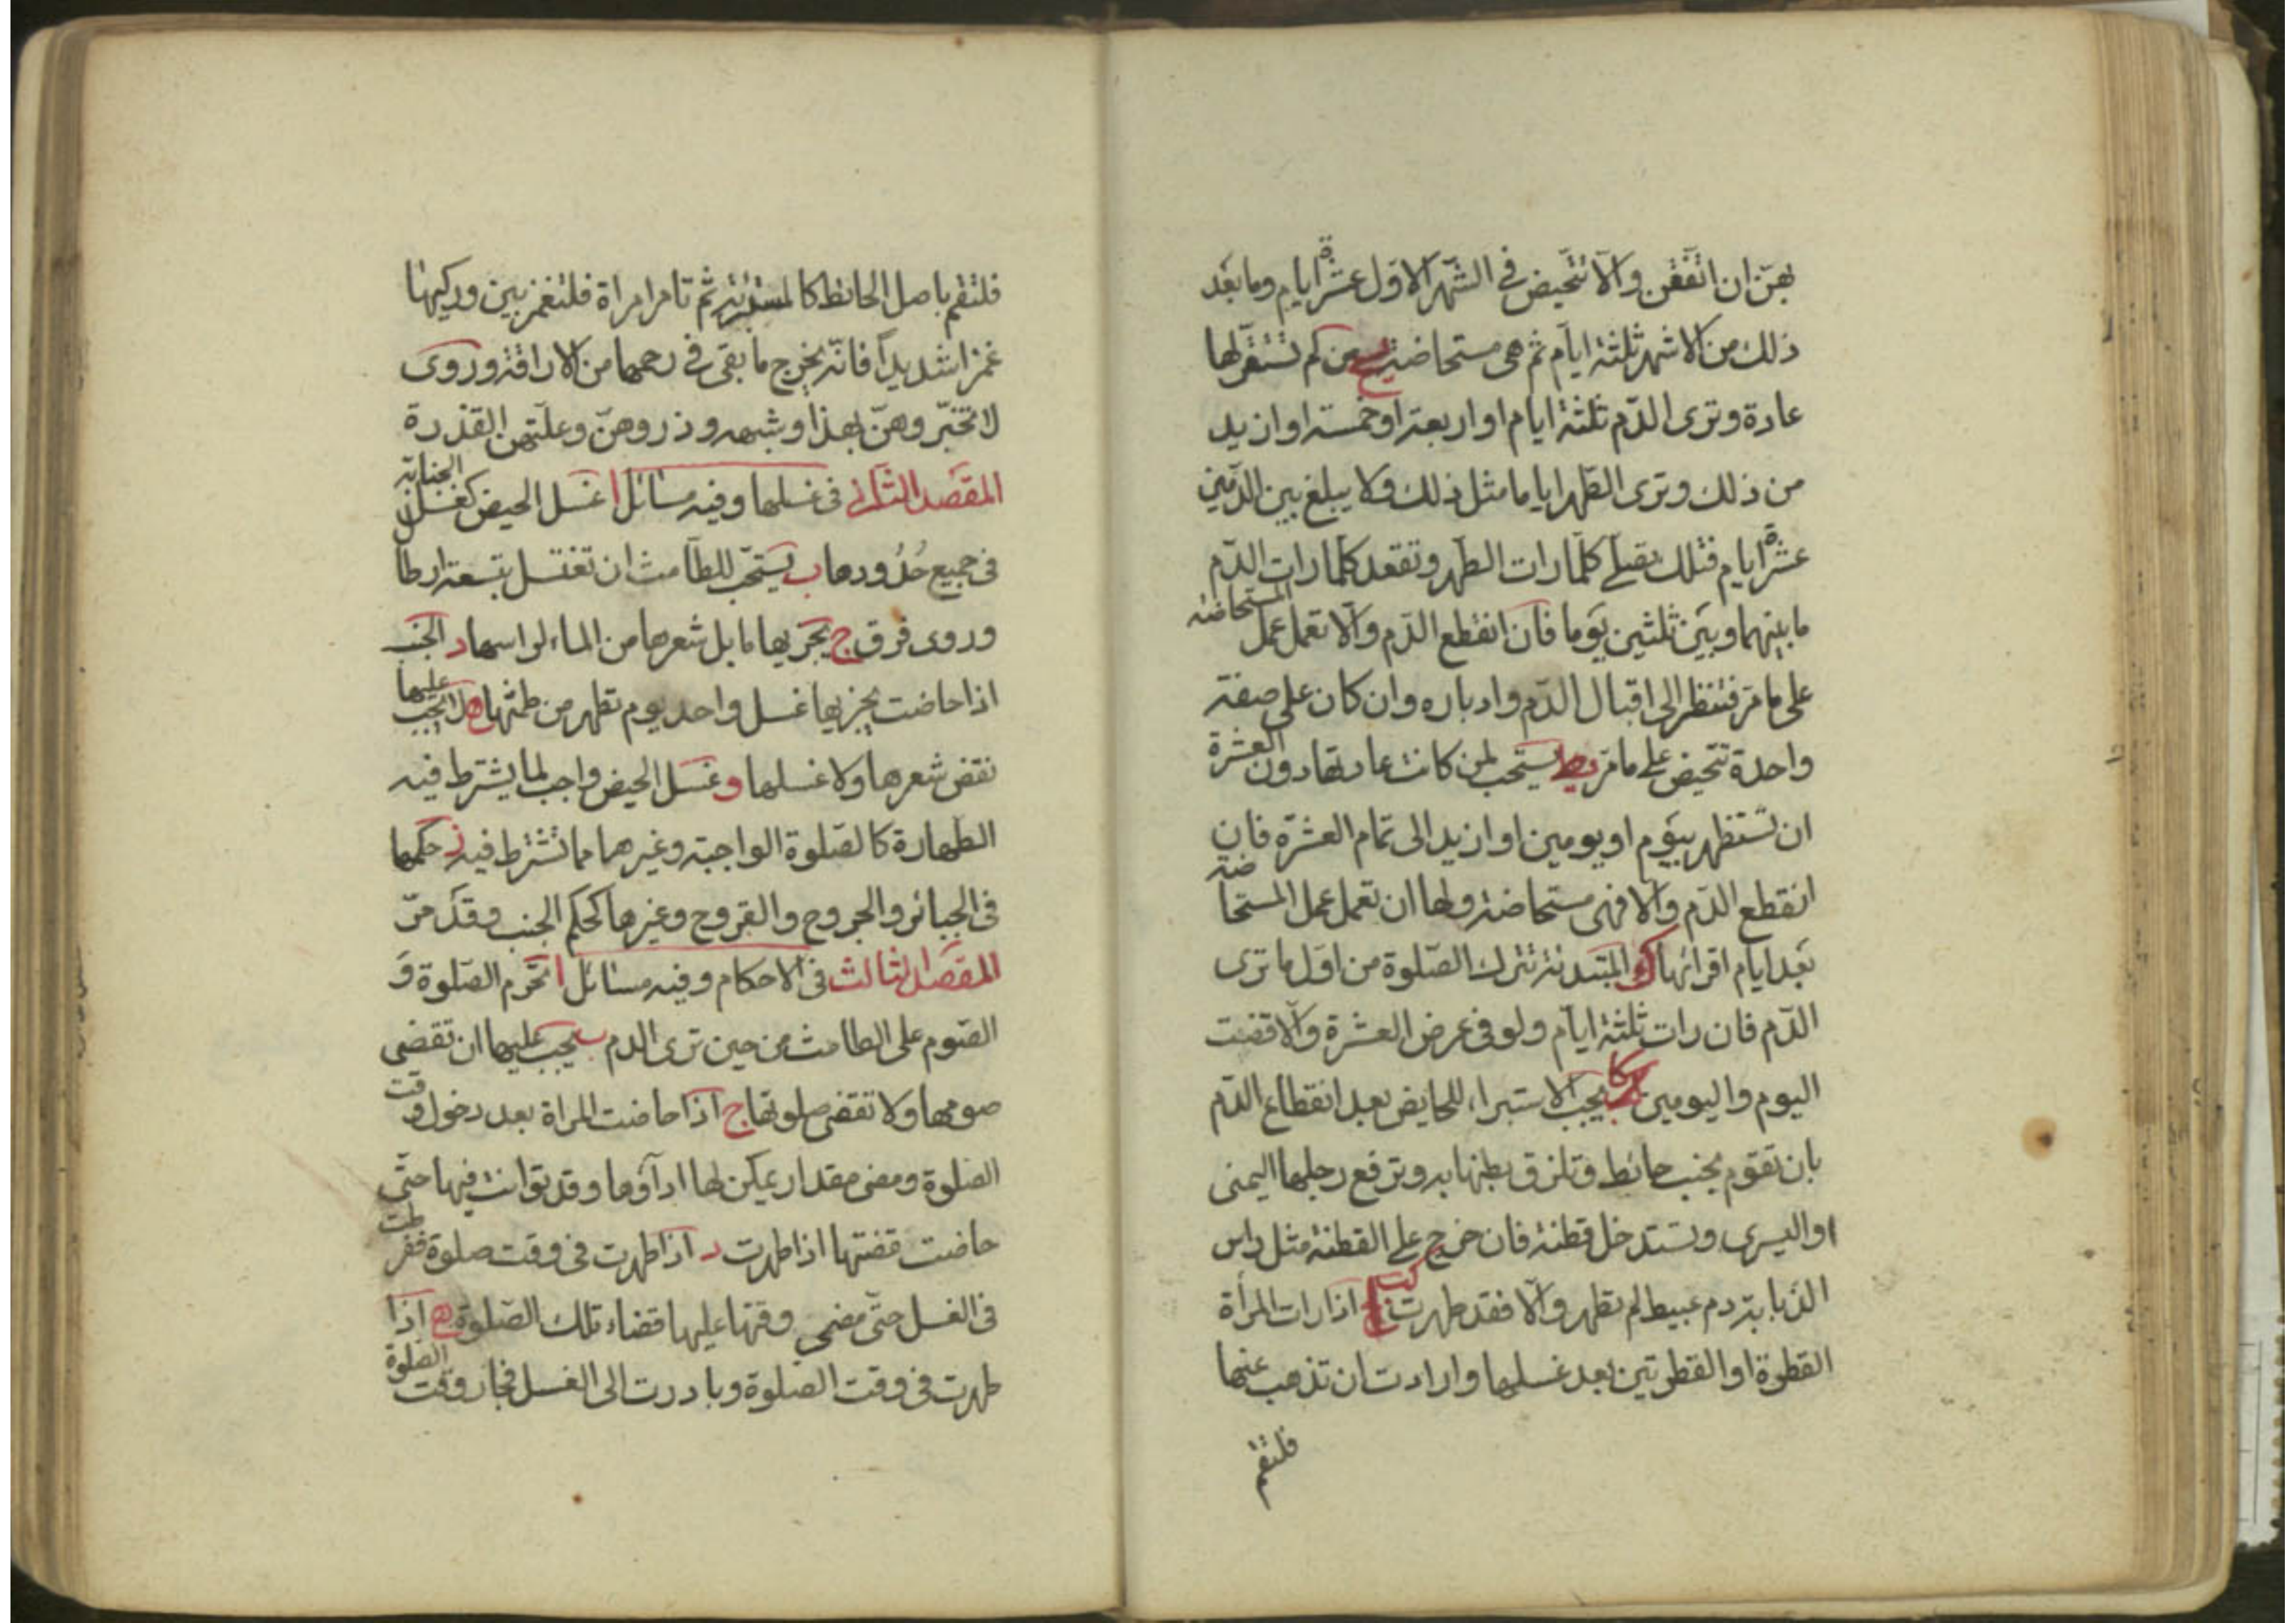 بهنّ ان اتفقن والّا تتحيض فی الشهر الاوّل عشرة ايام وما بعد
ذلك من الاشهر ثلثة ايام ثم هی مستحاضة يح من لم تستقر لها
عادة وترى الدّم ثلثة ايام او اربعة او خمسة او ازيد
من ذلك وترى الطّهر اياما مثل ذلك ولا يبلغ بين الدّمين
عشرة ايام فتلك تصلّی كلّما رات الطهر وتقعد كلّما رات الدّم
ما بينهما وبين ثلثين يوما فان انقطع الدّم والّا تعمل عمل المستحاضة
على ما مرّ فتنظر الى اقبال الدّم وادباره وان كان على صفة
واحدة تتحيض على ما مرّ يط يستحب لمن كانت عادتها دون العشرة
ان تستظهر بيوم او يومين او ازيد الى تمام العشرة فان
انقطع الدّم والّا فهی مستحاضة ولها ان تعمل عمل المستحاضة
بعد ايام اقرائها ك المبتدئة تترك الصّلوة من اوّل ما ترى
الدّم فان رات ثلثة ايام ولو فی عرض العشرة والّا قضت
اليوم واليومين كا يجب الاستبراء للحايض بعد انقطاع الدّم
بان تقوم بجنب حائط وتلزق بطنها به وترفع رجلها اليمنى
او اليسرى وتستدخل قطنة فان خرج على القطنة مثل راس
الذبابة دم عبيط لم تطهر والّا فقد طهرت كب اذا رات المرأة
القطرة او القطرتين بعد غسلها وارادت ان تذهب عنها
فلتقم
فلتقم باصل الحائط كالمستبرئة ثم تامر امراة فلتغمز بين وركيها
غمزا شديدا فانّه يخرج ما بقی فی رحمها من الاراقة وروى
لا تخبّروهنّ بهذا وشبهه وذروهنّ وعلّتهن القذرة
المقصد الثانی فی غسلها وفيه مسائل ا غسل الحيض كغسل الجنابة
فی جميع حدودها ب يستحبّ للطامث ان تغتسل بتسعة ارطال
وروى فرق ج يجزيها ما بل شعرها من الماء لراسها د الجنب
اذا حاضت يجزيها غسل واحد يوم تطهر من طمثها ه لا يجب عليها
نقض شعرها ولا غسلها و غسل الحيض واجب لما يشترط فيه
الطهارة كالصّلوة الواجبة وغيرهما مما تشترط فيه ز حكمها
فی الجبائر والجروح والقروح وغيرها كحكم الجنب وقد مرّ
المقصد الثالث فی الاحكام وفيه مسائل ا تحرم الصّلوة و
الصّوم على الطامث من حين ترى الدم ب يجب عليها ان تقضی
صومها ولا تقضی صلوتها ج اذا حاضت المراة بعد دخول وقت
الصّلوة ومضى مقدار يمكن لها اداؤها وقد توانت فيها حتّى
حاضت قضتها اذا طهرت د اذا طهرت فی وقت صلوة ففرطت
فی الغسل حتّى مضى وقتها عليها قضاء تلك الصّلوة ه اذا
طهرت فی وقت الصلوة وبادرت الى الغسل فجاز وقت الصلوة